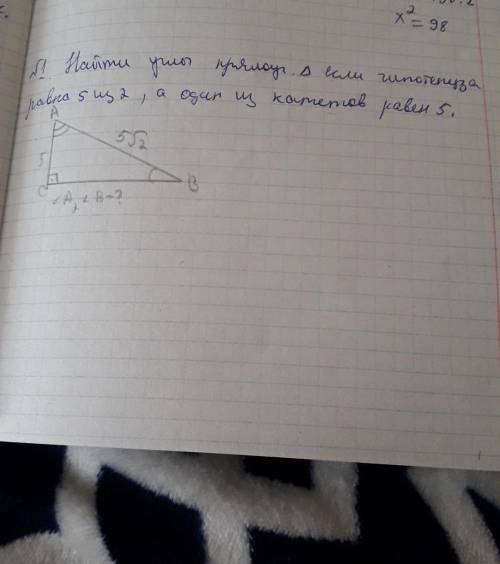 x² = 98
№1 Найти углы прямоуг. Δ если гипотенуза
равна 5 из 2, а один из катетов равен 5.
A
5√2
5
C
B
∠A, ∠B = ?